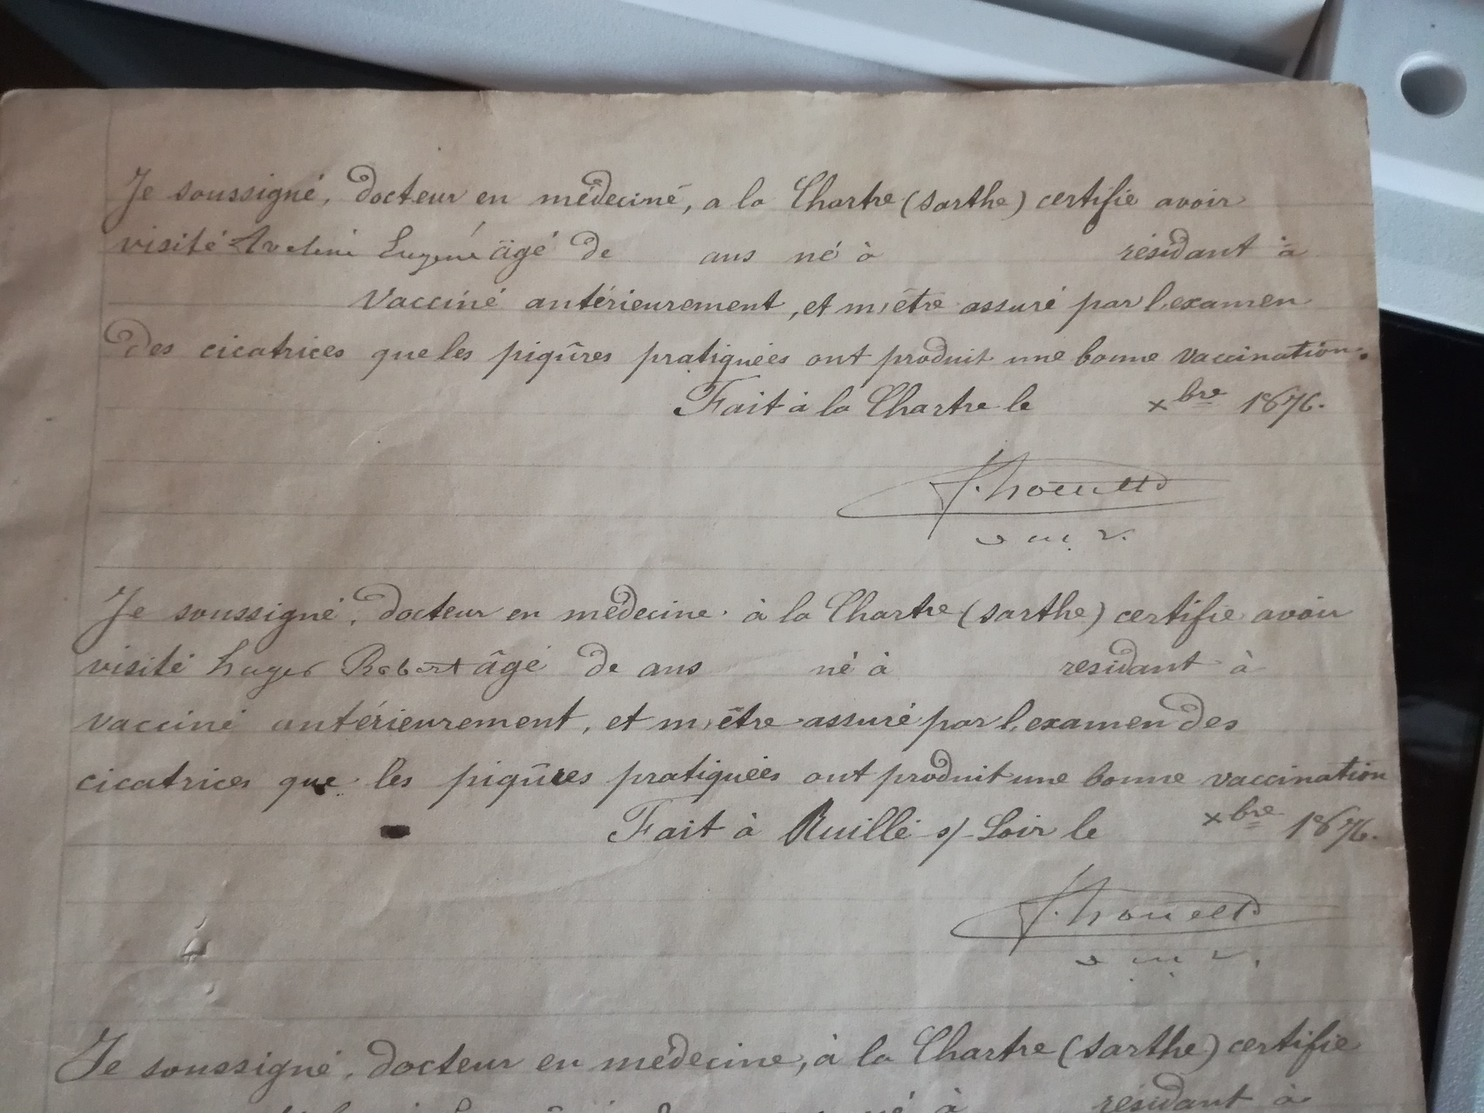 Je soussigné, docteur en médeciné, a la Chartre (sarthe) certifie avoir
visité Eugene âgé de ans né à résidant à
Vacciné antérieurement, et m'être assuré par l'examen
des cicatrices que les piqûres pratiquées ont produit une bonne vaccination.
Fait à la Chartre le xbre 1876.
Je soussigné, docteur en médecine à la Chartre (sarthe) certifie avoir
visité Luger Robert âgé de ans né à residant à
vacciné antérieurement, et m'être assuré par l'examen des
cicatrices que les piqûres pratiquées ont produit une bonne vaccination
Fait à Ruillé s/ Loir le xbre 1876.
Je soussigné, docteur en médecine, à la Chartre (sarthe) certifie
né à résidant à